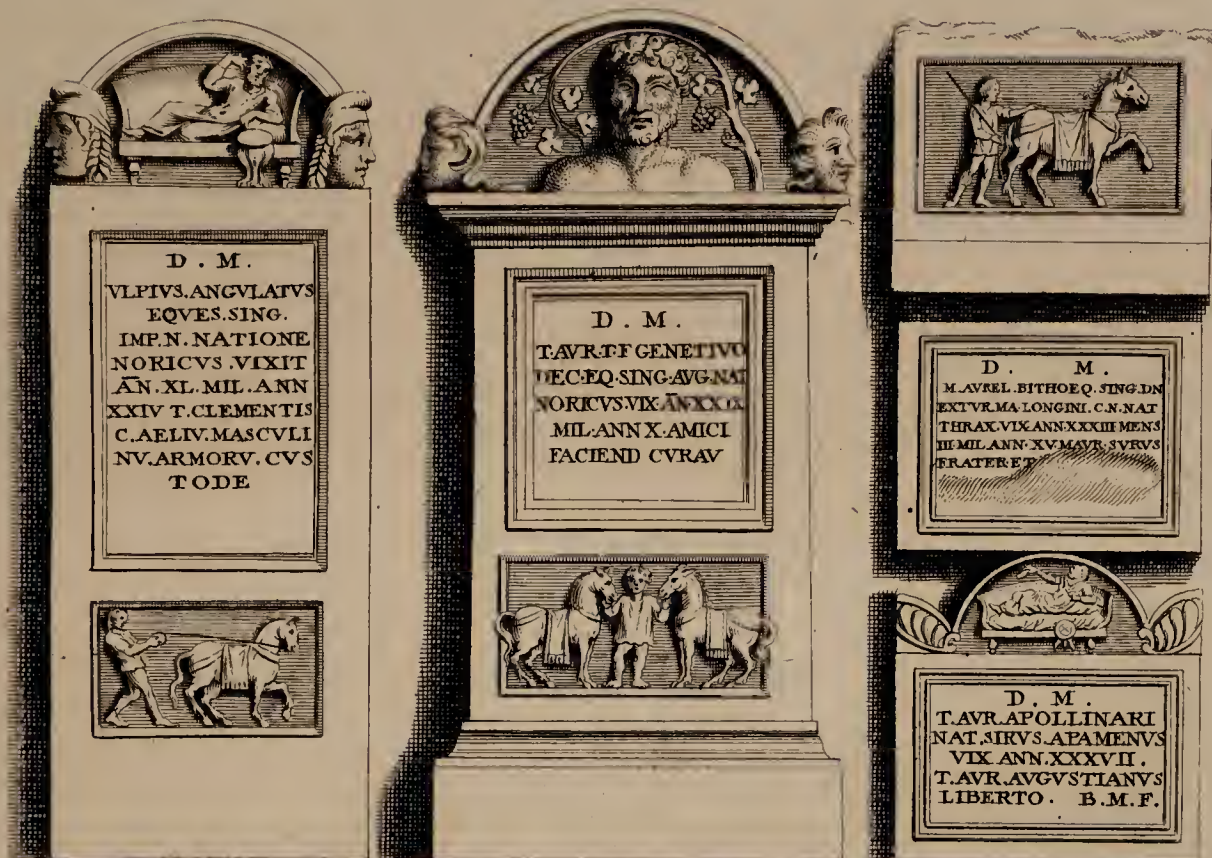 D . M .
VLPIVS.ANGVLATVS
EQVES.SING.
IMP.N.NATIONE
NORICVS.VIXIT
ĀN.XL.MIL.ANN
XXIV T.CLEMENTIS
C.AELIV.MASCVLI
NV.ARMORV.CVS
TODE
D . M .
T·AVR·T·F GENETIVO
DEC·EQ·SING·AVG·NAT
NORICVS·VIX·ĀN·XXIX
MIL·ANN X·AMICI
FACIEND CVRAV
D. M.
M.AVREL.BITHOEQ.SING.DN
EXTVR.MA·LONGINI.C.N.NAT
THRAX.VIX.ANN.XXXIII MENS
III·MIL.ANN·XV.MAVR·SVRVS
FRATER·ET
D . M .
T.AVR.APOLLINARI
NAT.SIRVS.APAMENVS
VIX ANN.XXXVII.
T.AVR.AVGVSTIANVS
LIBERTO. B.M.F.